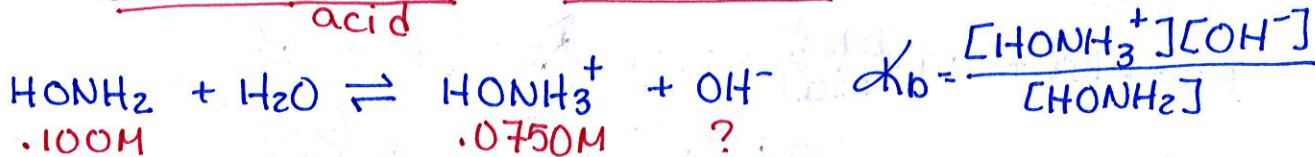 acid
HONH₂ + H₂O ⇌ HONH₃⁺ + OH⁻ Kb = [HONH₃⁺][OH⁻] / [HONH₂]
.100M .0750M ?